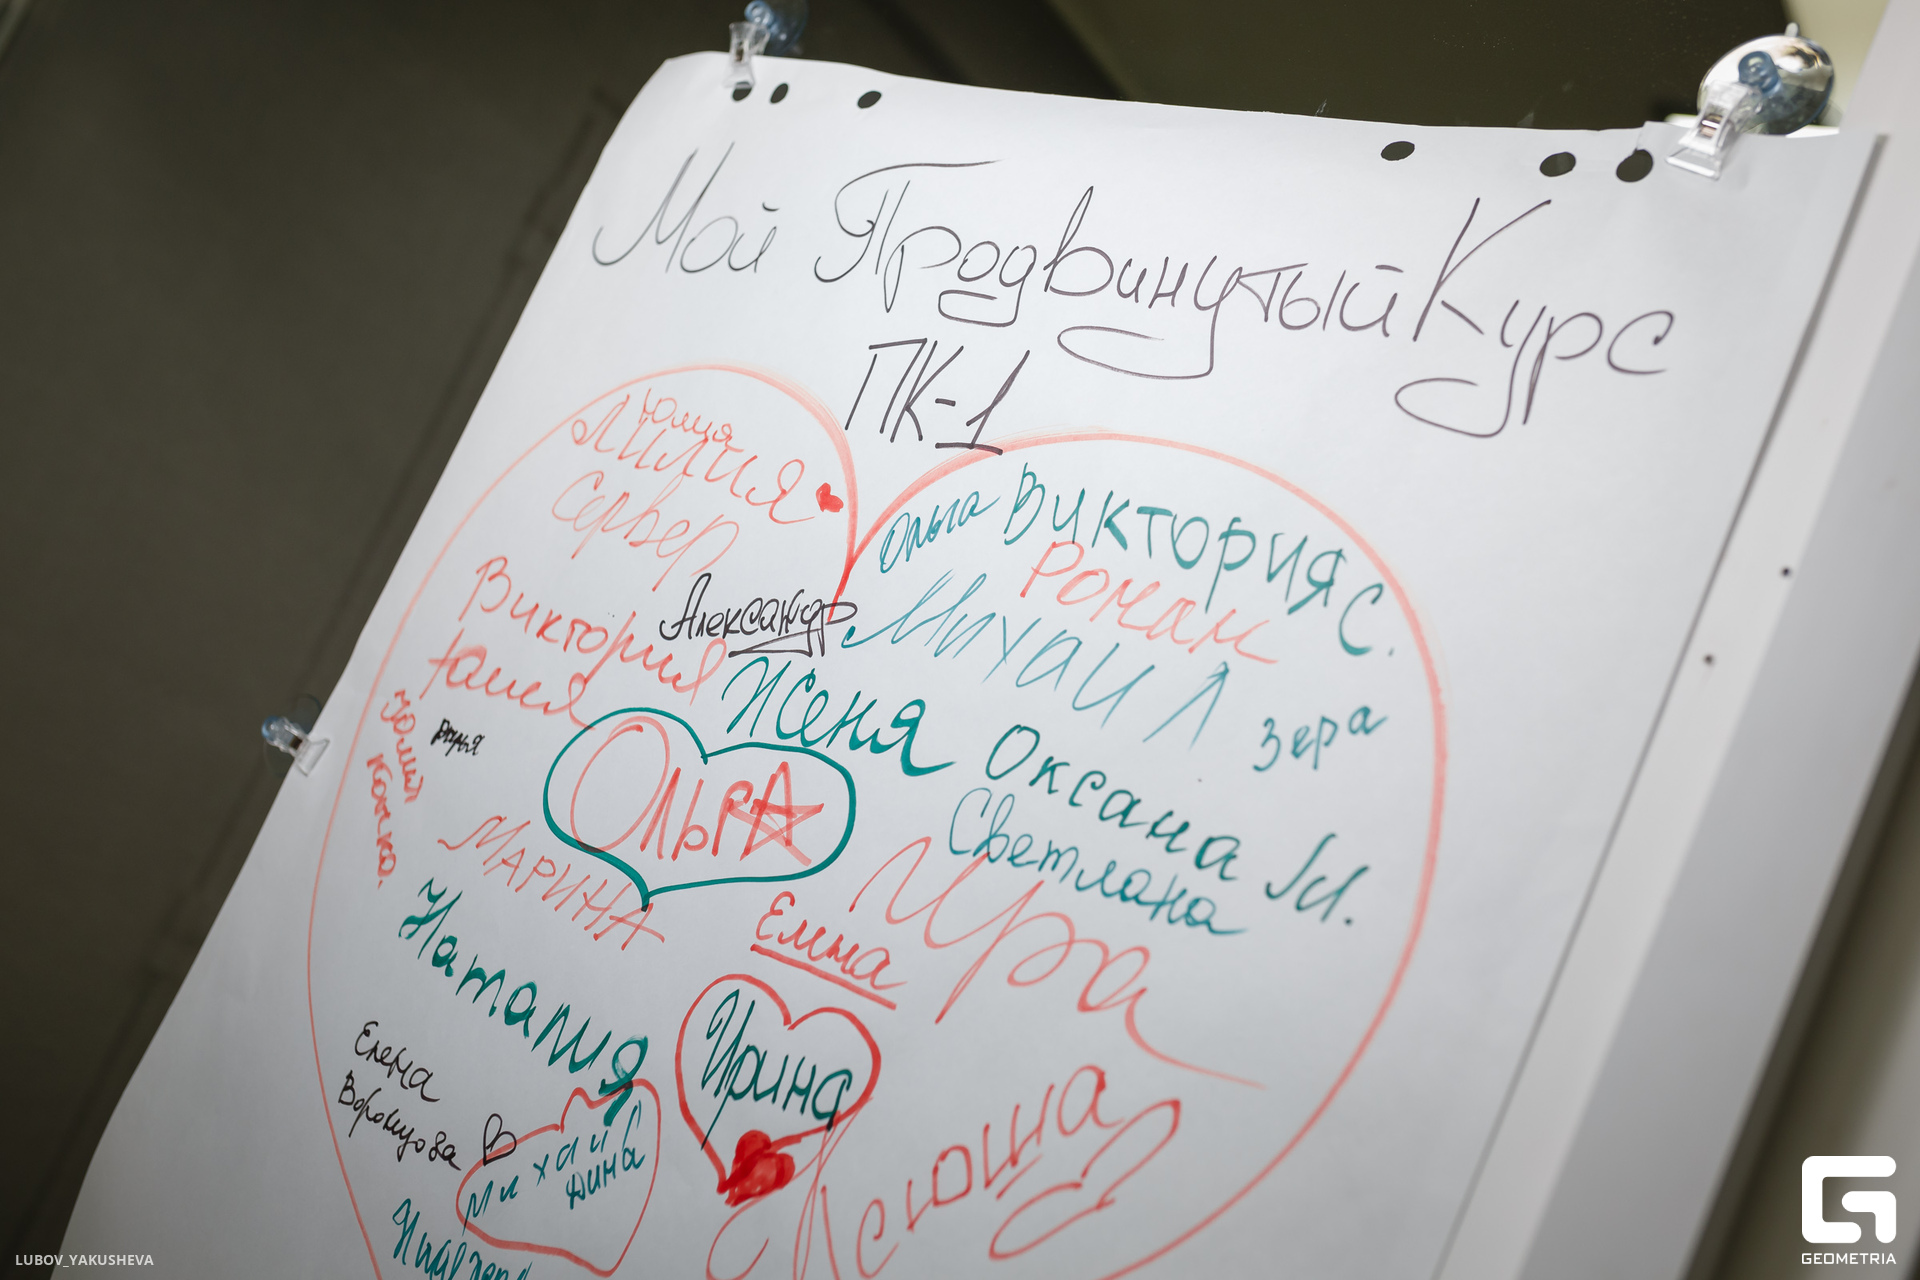 Мой Продвинутый Курс
ПК-1
Юлия
Лилия
Сервер
Ольга
Виктория С.
Роман
Виктория
Александр
Михаил
Юлия
Женя
Зера
Юлия
Ольга
Оксана М.
Светлана
Марина
Ира
Наталия
Ирина
Елена
Воронцова
Михаил
Дина
Ксюша
LUBOV_YAKUSHEVA
GEOMETRIA